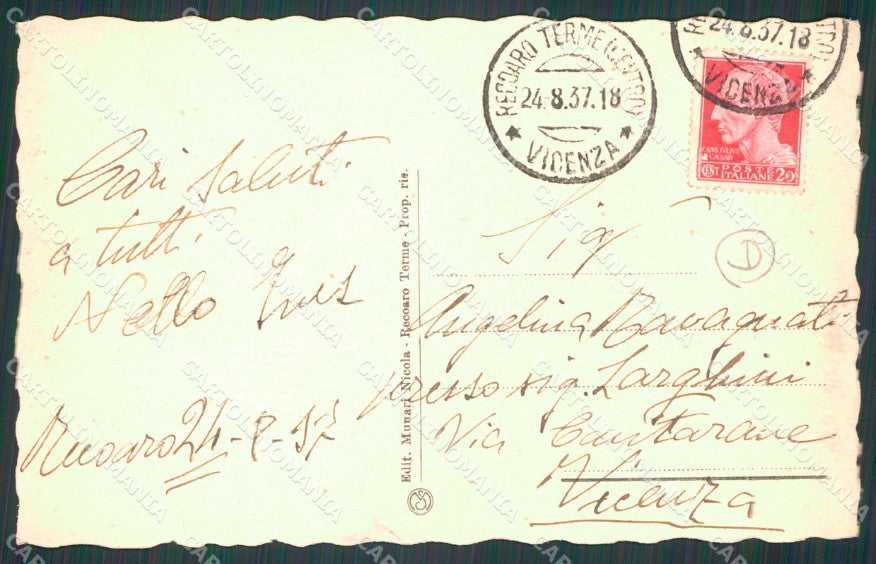 RECOARO TERME (CENTRO)
24.8.37.18
VICENZA
24.8.37.18
VICENZA
CAIVS IVLIVS
CAESAR
POSTE
CENT ITALIANE 20
Cari saluti
a tutti.
Nello Ines
Recoaro 24-8-37
Edit. Munari Nicola - Recoaro Terme - Prop. ris.
Sig
Angelina Ravagnati
presso sig. Larghini
Via Cantarane
Vicenza
CARTOLINOMANIA